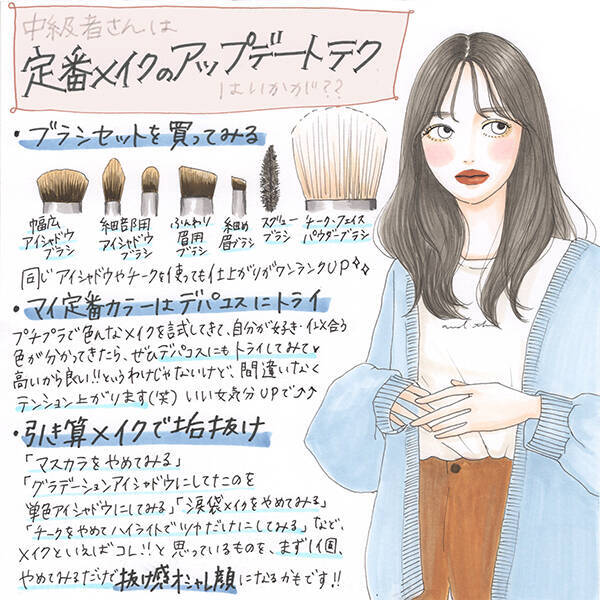 中級者さんは
定番メイクのアップデートテク
はいかが??
・ブラシセットを買ってみる
幅広アイシャドウブラシ
細部用アイシャドウブラシ
ふんわり眉用ブラシ
細め眉ブラシ
スクリューブラシ
チーク・フェイスパウダーブラシ
同じアイシャドウやチークを使っても仕上がりがワンランクUP
・マイ定番カラーはデパコスにトライ
プチプラで色んなメイクを試してきて、自分が好き・似合う
色が分かってきたら、ぜひデパコスにもトライしてみて♥
高いから良い!!というわけじゃないけど、間違いなく
テンション上がります(笑) いい女気分UPで↑↑
・引き算メイクで垢抜け
「マスカラをやめてみる」
「グラデーションアイシャドウにしてたのを
単色アイシャドウにしてみる」「涙袋メイクをやめてみる」
「チークをやめてハイライトでツヤだけにしてみる」など、
メイクといえばコレ!!と思っているものを、まず1個、
やめてみるだけで抜け感オシャレ顔になるかもです!!